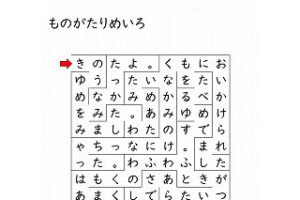 ものがたりめいろ
きのたよ。くもにお
ゆうったいなたおい
めなかみめかるべか
をみた。あみゆめけ
みましわたのすでら
ちゃっなにけ。まれ
た。わふわふした
はもくのさあときが
あまくしでらたいつ